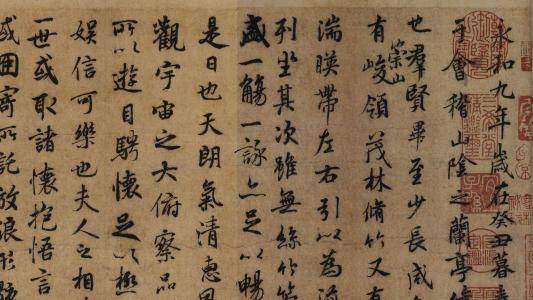 永和九年歲在癸丑暮春
于會稽山陰之蘭亭
也羣賢畢至少長咸
有崇山峻領茂林脩竹又有
湍暎帶左右引以為流
列坐其次雖無絲竹管
盛一觴一詠亦足以暢
是日也天朗氣清惠風
觀宇宙之大俯察品
所以遊目騁懷足以極
娛信可樂也夫人之相
一世或取諸懷抱悟言
或因寄所託放浪形骸